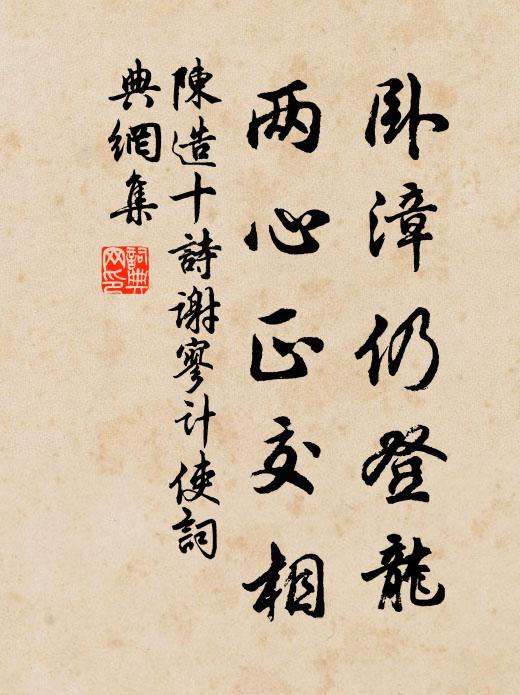 卧漳仍登龍
两心正交相
陳造十詩謝寥计使詞
典網集
詞典网印